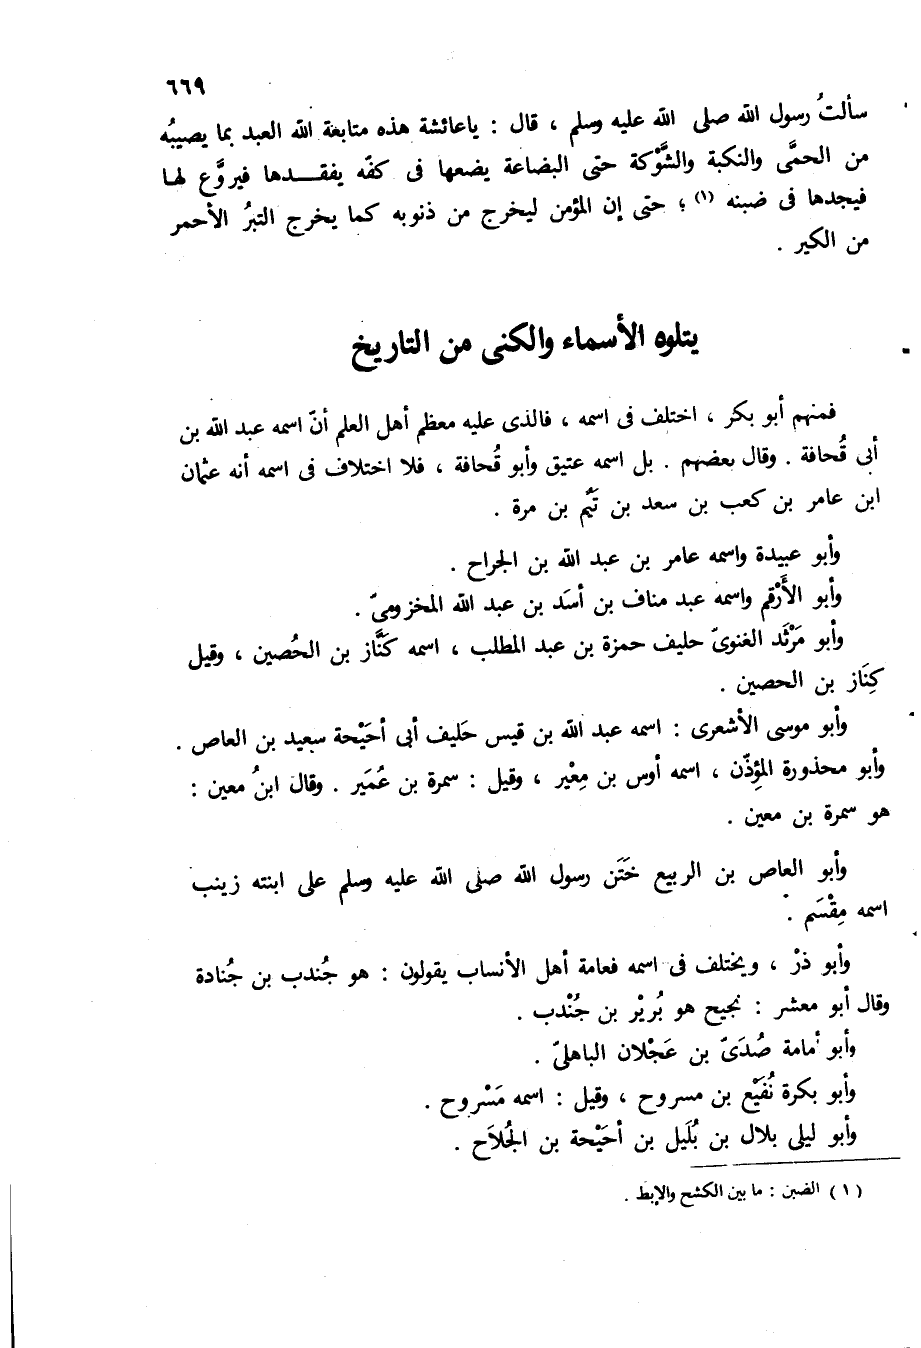 ٦٦٩
سألتُ رسول الله صلى الله عليه وسلم ، قال : ياعائشة هذه متابعة الله العبد بما يصيبُه
من الحمَّى والنكبة والشَّوْكة حتى البضاعة يضعها فى كفّه يفقـــدها فيروَّع لهـا
فيجدها فى ضبنه (١) ؛ حتى إن المؤمن ليخرج من ذنوبه كما يخرج التبرُ الأحمر
من الكير .
يتلوه الأسماء والكنى من التاريخ
فمنهم أبو بكر ، اختلف فى اسمه ، فالذى عليه معظم أهل العلم أنّ اسمه عبد الله بن
أبى قُحافة . وقال بعضهم . بل اسمه عتيق وأبو قُحافة ، فلا اختلاف فى اسمه أنه عثمان
ابن عامر بن كعب بن سعد بن تَيْم بن مرة .
وأبو عبيدة واسمه عامر بن عبد الله بن الجراح .
وأبو الأَرْقم واسمه عبد مناف بن أسَد بن عبد الله المخزومىّ .
وأبو مَرْثَد الغنوىّ حليف حمزة بن عبد المطلب ، اسمه كَنَّاز بن الحُصين ، وقيل
كِنَاز بن الحصين .
وأبو موسى الأشعرى : اسمه عبد الله بن قيس حَليف أبى أحَيْحة سعيد بن العاص .
وأبو محذورة المؤذّن ، اسمه أوس بن مِعْير ، وقيل : سمرة بن عُمَير . وقال ابنُ معين :
هو سمرة بن معين .
وأبو العاص بن الربيع خَتَن رسول الله صلى الله عليه وسلم على ابنته زينب
اسمه مِقْسَم .
وأبو ذرْ ، ويختلف فى اسمه فعامة أهل الأنساب يقولون : هو جُندب بن جُنادة
وقال أبو معشر : نجيح هو بُريْر بن جُنْدب .
وأبو أمامة صُدَىّ بن عَجْلان الباهلىّ .
وأبو بكرة نُفَيْع بن مسروح ، وقيل : اسمه مَسْروح .
وأبو ليلى بلال بن بُلَيل بن أحَيْحة بن الجُلاَح .
( ١ ) الضبن : ما بين الكشح والإبط .